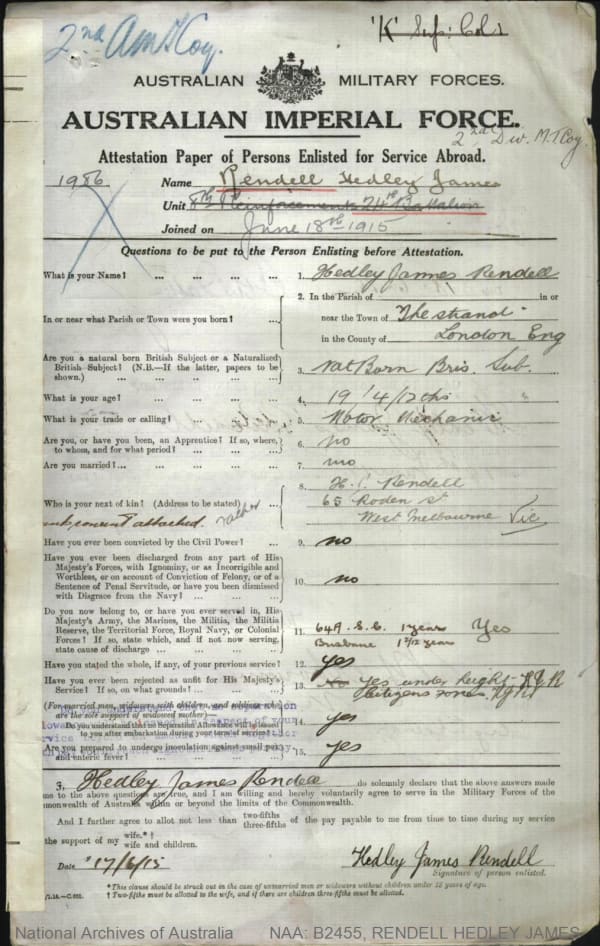 2nd Amt Coy.
'K' Sup: Col
AUSTRALIAN MILITARY FORCES.
AUSTRALIAN IMPERIAL FORCE.
2nd Div. M.T. Coy
Attestation Paper of Persons Enlisted for Service Abroad.
1986
Name Rendell Hedley James
Unit 8th Reinforcements 24th Battalion
Joined on June 18th 1915
Questions to be put to the Person Enlisting before Attestation.
What is your Name? ... ... ... ... 1. Hedley James Rendell
2. In the Parish of in or
In or near what Parish or Town were you born? ... near the Town of The strand
in the County of London Eng
Are you a natural born British Subject or a Naturalized
British Subject? (N.B.—If the latter, papers to be 3. Nat Born Bris. Sub.
shown.) ... ... ... ... ...
What is your age? ... ... ... ... 4. 19 4/12 ths
What is your trade or calling? ... ... ... 5. Motor Mechanic
Are you, or have you been, an Apprentice? If so, where, 6. no
to whom, and for what period? ... ... ...
Are you married?... ... ... ... ... 7. no
8. H. Rendell
Who is your next of kin? (Address to be stated) ... 65 Roden st
consent attached. Father West Melbourne Vic
Have you ever been convicted by the Civil Power? ... 9. no
Have you ever been discharged from any part of His
Majesty's Forces, with Ignominy, or as Incorrigible and
Worthless, or on account of Conviction of Felony, or of a 10. no
Sentence of Penal Servitude, or have you been dismissed
with Disgrace from the Navy? ... ... ...
Do you now belong to, or have you ever served in, His
Majesty's Army, the Marines, the Militia, the Militia
Reserve, the Territorial Force, Royal Navy, or Colonial 11. 64 A.S.C. 1 year Yes
Forces? If so, state which, and if not now serving, Brisbane 1 3/12 years
state cause of discharge ... ... ... ...
Have you stated the whole, if any, of your previous service? 12. yes
Have you ever been rejected as unfit for His Majesty's 13. No Yes under height HJR
Service? If so, on what grounds? ... ... Citizens forces. HJR
(For married men, widowers with children, and soldiers who
are the sole support of widowed mother)—
Do you understand that no Separation Allowance will be issued 14. yes
to you after embarkation during your term of service?
Are you prepared to undergo inoculation against small pox 15. yes
and enteric fever? ... ... ... ...
I, Hedley James Rendell do solemnly declare that the above answers made
me to the above questions are true, and I am willing and hereby voluntarily agree to serve in the Military Forces of the
monwealth of Australia within or beyond the limits of the Commonwealth.
And I further agree to allot not less than two-fifths three-fifths of the pay payable to me from time to time during my service
the support of my wife.*† wife and children.
Date 17/6/15 Hedley James Rendell
Signature of person enlisted.
*This clause should be struck out in the case of unmarried men or widowers without children under 18 years of age.
† Two-fifths must be allotted to the wife, and if there are children three-fifths must be allotted.
National Archives of Australia NAA: B2455, RENDELL HEDLEY JAMES